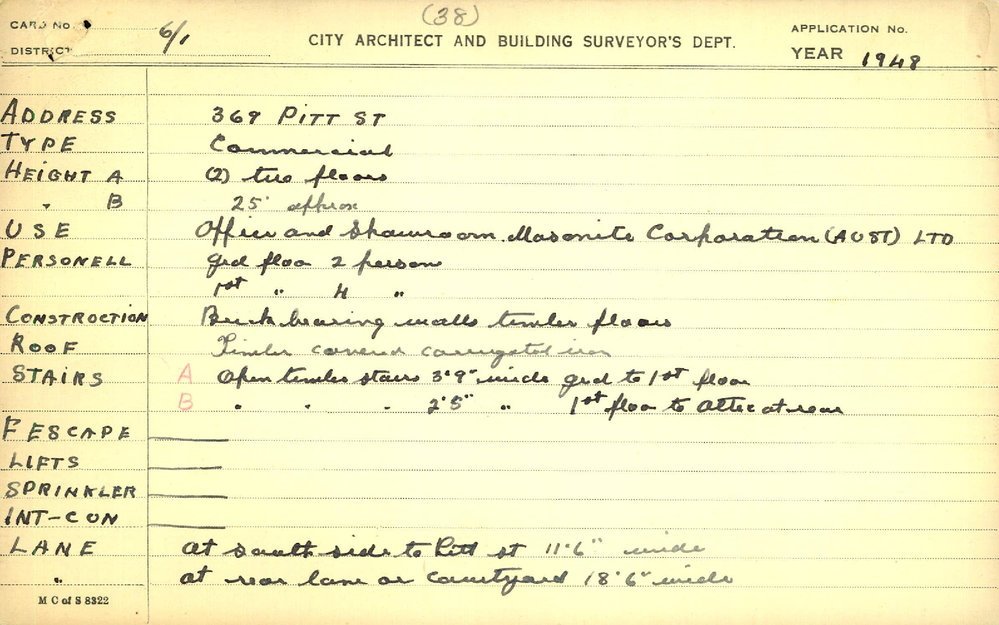 (38)
CARD No. 6/1 CITY ARCHITECT AND BUILDING SURVEYOR'S DEPT. APPLICATION No.
DISTRICT YEAR 1948
ADDRESS 369 PITT ST
TYPE Commercial
HEIGHT A (2) two floors
" B 25' approx
USE Office and Showroom. Masonite Corporation (AUST) LTD
PERSONELL grd floor 2 person
1st " 4 "
CONSTROCTION Brick bearing walls timber floors
ROOF Timber covered corrugated iron
STAIRS A Open timber stairs 3'9" wide grd to 1st floor
B " " " 2'5" " 1st floor to attic at rear
F ESCAPE
LIFTS
SPRINKLER
INT-CON
LANE at south side to Pitt st 11'6" wide
" at rear lane or courtyard 18'6" wide
M C of S 8322